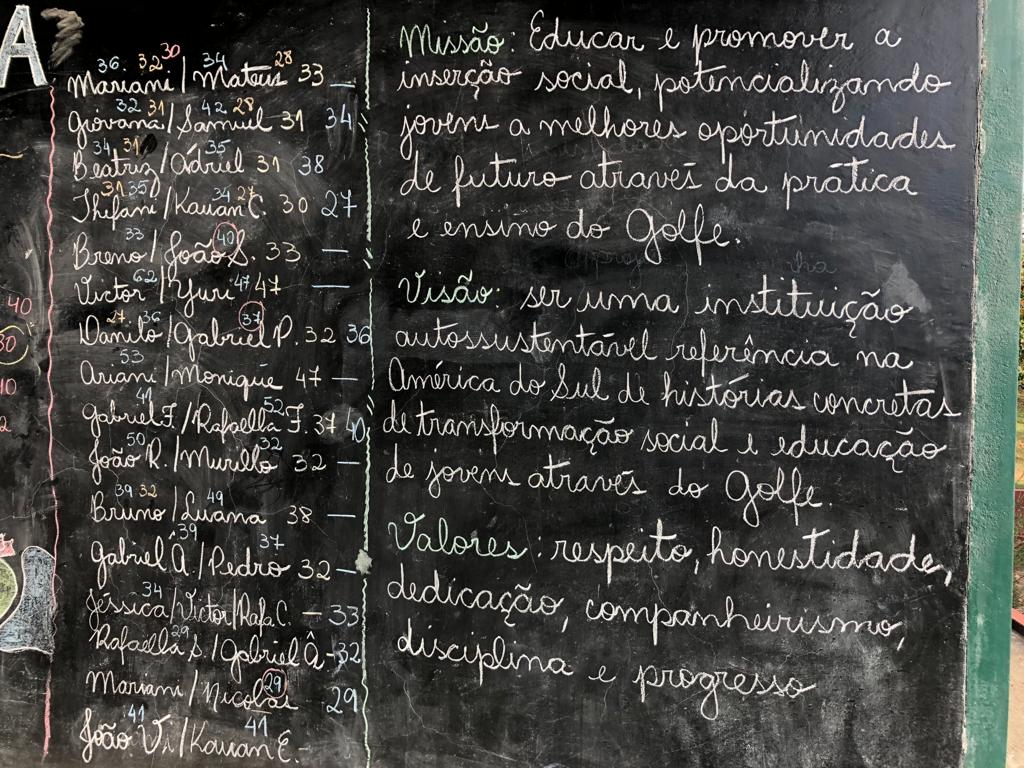 A
36. 32 30 34 28
Mariani / Mateus 33 —
32 31 42 28
Giovana / Samuel 31 34
34 31 35
Beatriz / Adriel 31 38
31 35 34 27
Thifani / Kauan C. 30 27
33 40
Breno / João S. 33 —
62 47
Victor / Yuri 47 —
27 36 37
Danilo / Gabriel P. 32 36
53
Ariani / Monique 47 —
41 52
Gabriel F. / Rafaella F. 37 40
50 32
João R. / Murillo 32 —
39 32 49
Bruno / Luana 38 —
39 37
Gabriel Â. / Pedro 32 —
34
Jéssica / Victor / Rafa C. — 33
29
Rafaella S. / Gabriel Â - 32
29
Mariani / Nicolas 29
41 41
João Vi / Kauan E. -
40
30
Missão: Educar e promover a
inserção social, potencializando
jovens a melhores oportunidades
de futuro através da prática
e ensino do Golfe.
Visão: ser uma instituição
autossustentável referência na
América do Sul de histórias concretas
de transformação social e educação
de jovens através do Golfe.
Valores: respeito, honestidade,
dedicação, companheirismo,
disciplina e progresso